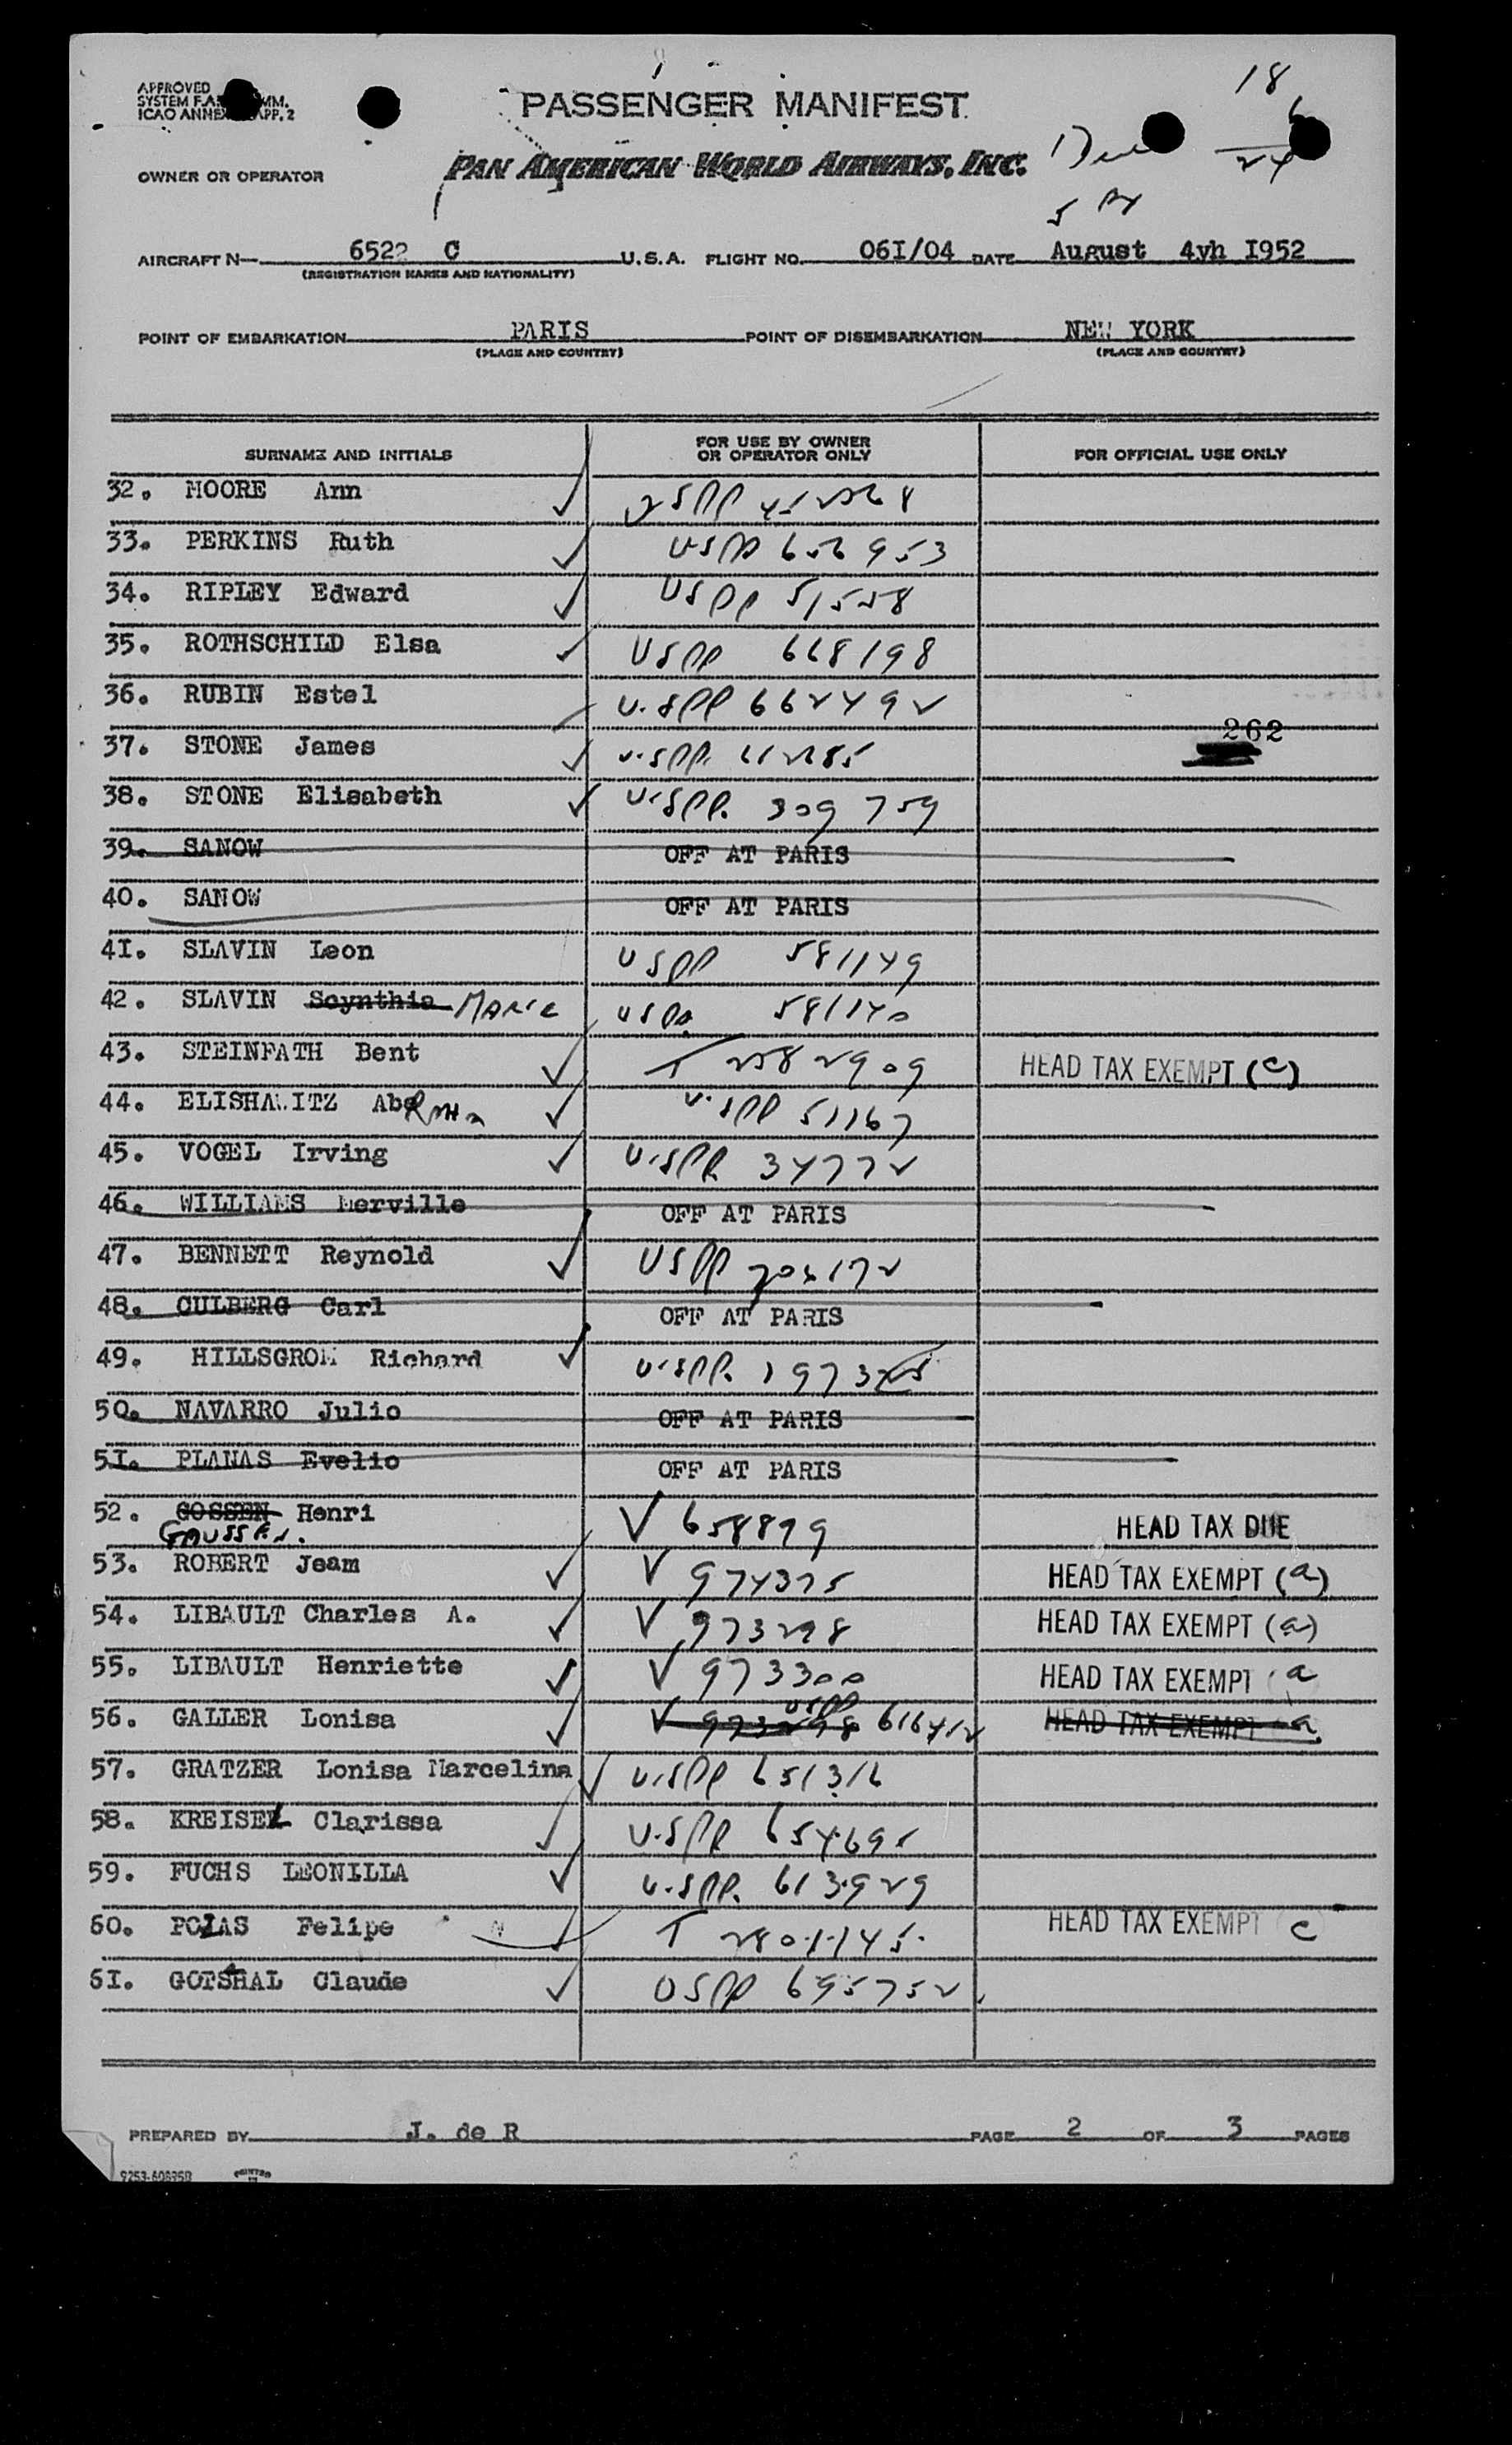 APPROVED
18
PASSENGER MANIFEST
ICAO ANNEX APP. 2
OWNER OR OPERATOR PAN AMERICAN WORLD AIRWAYS, INC.
24
5
AIRCRAFT N— 6522 C U.S.A. FLIGHT NO. 06I/04 DATE August 4yh I952
(REGISTRATION MARKS AND NATIONALITY)
POINT OF EMBARKATION PARIS POINT OF DISEMBARKATION NEW YORK
(PLACE AND COUNTRY) (PLACE AND COUNTRY)
SURNAME AND INITIALS FOR USE BY OWNER OR OPERATOR ONLY FOR OFFICIAL USE ONLY
32. MOORE Ann USPP
33. PERKINS Ruth USPP 656953
34. RIPLEY Edward USPP 51558
35. ROTHSCHILD Elsa USPP 668198
36. RUBIN Estel U.SPP 662492
262
37. STONE James U.SPP.
38. STONE Elisabeth U.SPP. 309759
39. SANOW OFF AT PARIS
40. SANOW OFF AT PARIS
4I. SLAVIN Leon USPP 581149
42. SLAVIN Scynthia MARIE USPP 581140
43. STEINFATH Bent T 2582909 HEAD TAX EXEMPT (c)
44. ELISHAWITZ U.SPP 51167
45. VOGEL Irving U.SPP 34772
46. WILLIAMS Merville OFF AT PARIS
47. BENNETT Reynold USPP
48. CULBERG Carl OFF AT PARIS
49. HILLSGROM Richard U.SPP.
50. NAVARRO Julio OFF AT PARIS
5I. PLANAS Evelio OFF AT PARIS
52. GOSSEN Henri V 658899 HEAD TAX DUE
GAUSSEN.
53. ROBERT Jeam V 974375 HEAD TAX EXEMPT (a)
54. LIBAULT Charles A. V 973298 HEAD TAX EXEMPT (a)
55. LIBAULT Henriette V 973300 HEAD TAX EXEMPT a
USPP
56. GALLER Lonisa V 973298 616412 HEAD TAX EXEMPT a
57. GRATZER Lonisa Marcelina U.SPP 651316
58. KREISEL Clarissa U.SPP
59. FUCHS LEONILLA U.SPP. 613929
60. POLAS Felipe T 2801145. HEAD TAX EXEMPT c
6I. GOTSHAL Claude USPP 695752
PREPARED BY J. de R PAGE 2 OF 3 PAGES
9253-60895B PRINTED